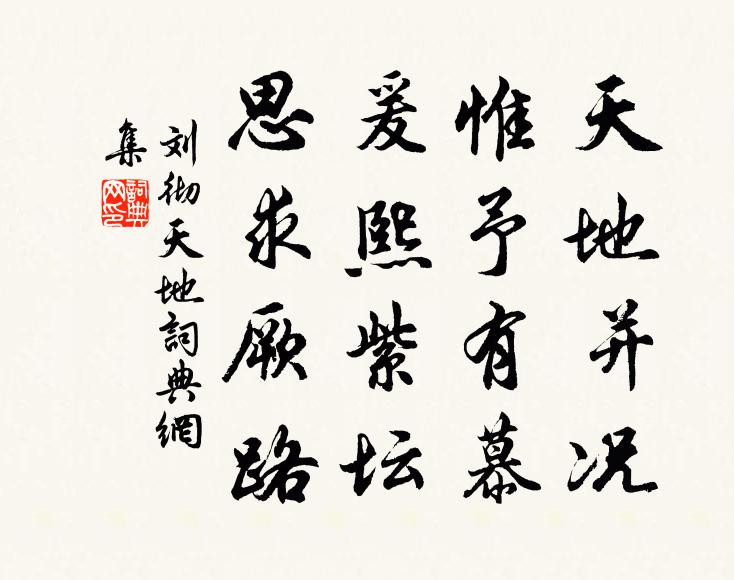 天地并况
惟予有慕
爰熙紫坛
思求厥路
刘彻天地詞典網
集
詞典网印